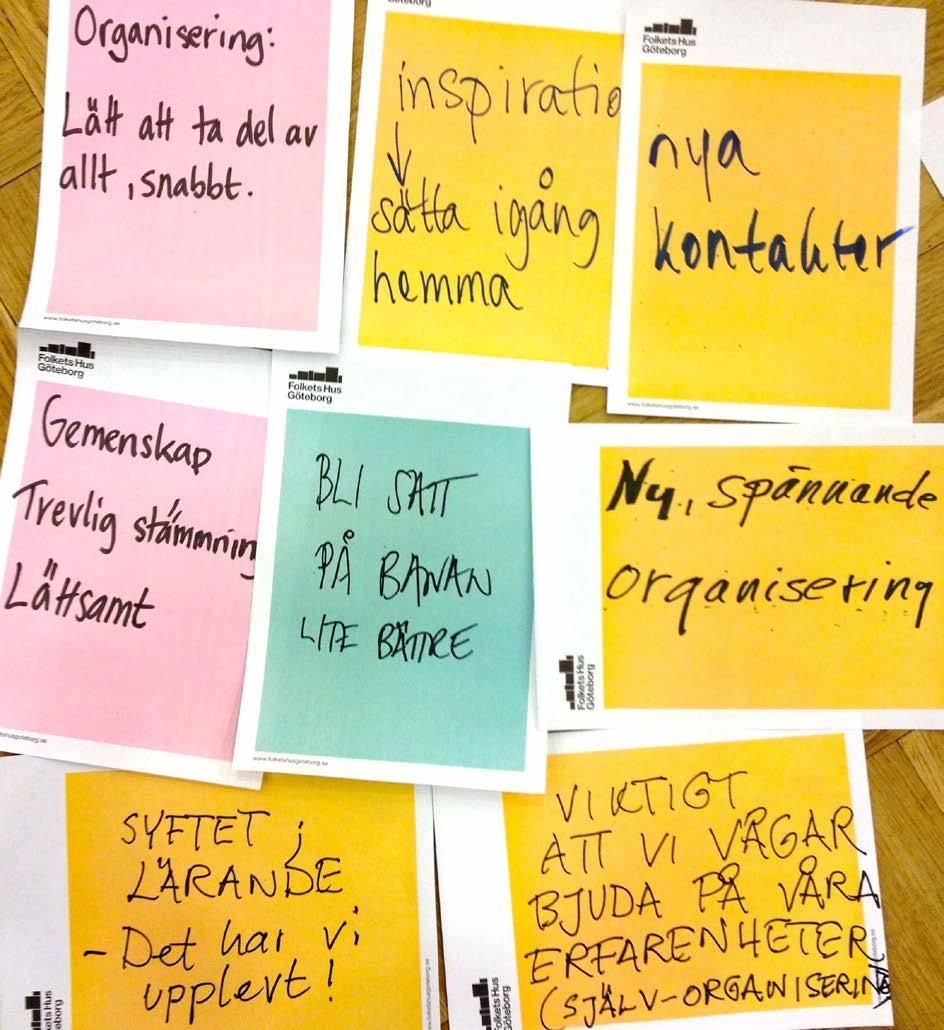 Organisering:
Lätt att ta del av
allt, snabbt.
www.folketshusgoteborg.se
Göteborg
inspiratio
↓
sätta igång
hemma
Folkets Hus
Göteborg
nya
kontakter
www.folketshusgoteborg.se
Folkets Hus
Göteborg
Gemenskap
Trevlig stämmnin
Lättsamt
folketshusgoteborg.se
Folkets Hus
Göteborg
BLI SATT
PÅ BANAN
LITE BÄTTRE
www.folketshusgoteborg.se
Ny, spännande
organisering
Folkets Hus
Göteborg
SYFTET i
LÄRANDE
- Det har vi
upplevt!
VIKTIGT
ATT VI VÅGAR
BJUDA PÅ VÅRA
ERFARENHETER
(SJÄLV-ORGANISERING